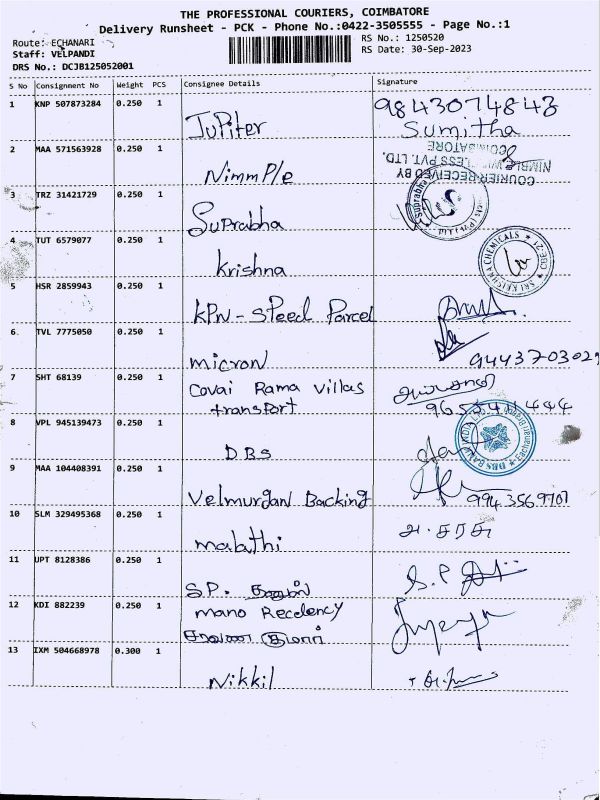 THE PROFESSIONAL COURIERS, COIMBATORE
Delivery Runsheet - PCK - Phone No.:0422-3505555 - Page No.:1
Route: ECHANARI
RS No.: 1250520
Staff: VELPANDI
RS Date: 30-Sep-2023
DRS No.: DCJB125052001
S No Consignment No Weight PCS Consignee Details Signature
1 KNP 507873284 0.250 1 Jupiter 9843074843
Sumitha
2 MAA 571563928 0.250 1 Nimmple
COURIER RECEIVED BY
LESS PVT. LTD.
COIMBATORE
3 TRZ 31421729 0.250 1 Suprabha
Suprabha
4 TUT 6579077 0.250 1 Krishna
SRI KRISHNA CHEMICALS
CBE-21
5 HSR 2859943 0.250 1 KPN - Speed Parcel
6 TVL 7775050 0.250 1 micron
7 SHT 68139 0.250 1 Covai Rama Villas
transport
8 VPL 945139473 0.250 1 DBS
DBS BANK INDIA LTD
Eachanari Branch
9 MAA 104408391 0.250 1 Velmurgan Backing 9943569707
10 SLM 329495368 0.250 1 malathi அ. சரசு
11 UPT 8128386 0.250 1 S.P. S.P
12 KDI 882239 0.250 1 Mano Recdency
சரவண குமார்
13 IXM 504668978 0.300 1 Nikkil